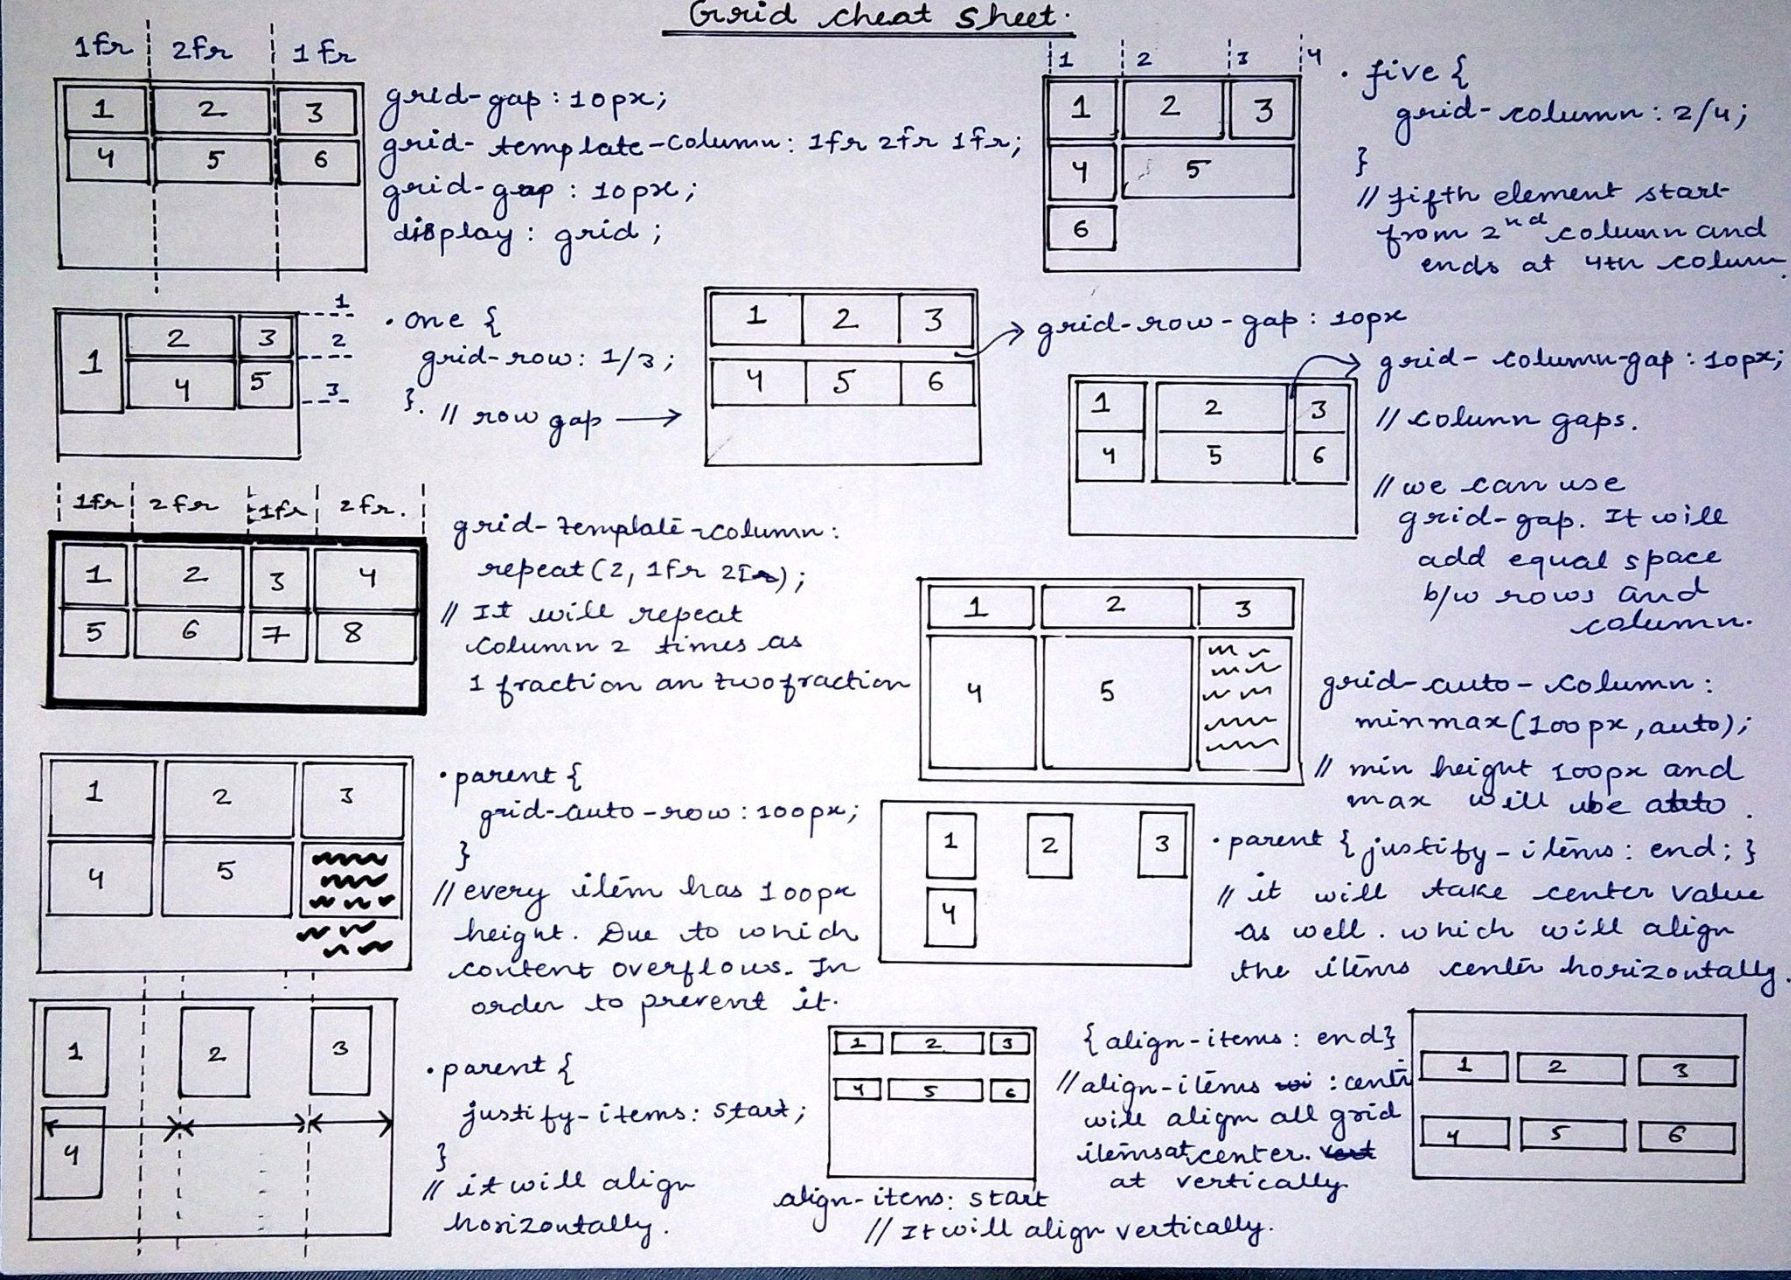 Grid cheat sheet.
1fr 2fr 1fr
1 2 3
4 5 6
grid-gap : 10px;
grid-template-column: 1fr 2fr 1fr;
grid-gap : 10px;
display : grid ;
1 2 3 4
1 2 3
4 5
6
. five {
grid-column: 2/4;
}
// fifth element start
from 2nd column and
ends at 4th colum
1
2
3
1 2 3
4 5
. one {
grid-row: 1/3;
}.
// row gap →
1 2 3
4 5 6
grid-row-gap : 10px
grid-column-gap : 10px;
1 2 3
4 5 6
// column gaps.
// we can use
grid-gap. It will
add equal space
b/w rows and
column.
1fr 2fr 1fr 2fr.
1 2 3 4
5 6 7 8
grid-template-column:
repeat(2, 1fr 2fr);
// It will repeat
column 2 times as
1 fraction an two fraction
1 2 3
4 5
grid-auto-column:
minmax(100px, auto);
// min height 100px and
max will be auto.
1 2 3
4 5
.parent {
grid-auto-row: 100px;
}
// every item has 100px
height. Due to which
content overflows. In
order to prevent it.
1 2 3
4
.parent { justify-items: end; }
// it will take center value
as well. which will align
the items center horizontally.
1 2 3
4
.parent {
justify-items: start;
}
// it will align
horizontally.
1 2 3
4 5 6
align-items: start
// It will align vertically.
{align-items: end}
// align-items : cent
will align all grid
items at center.
at vertically
1 2 3
4 5 6